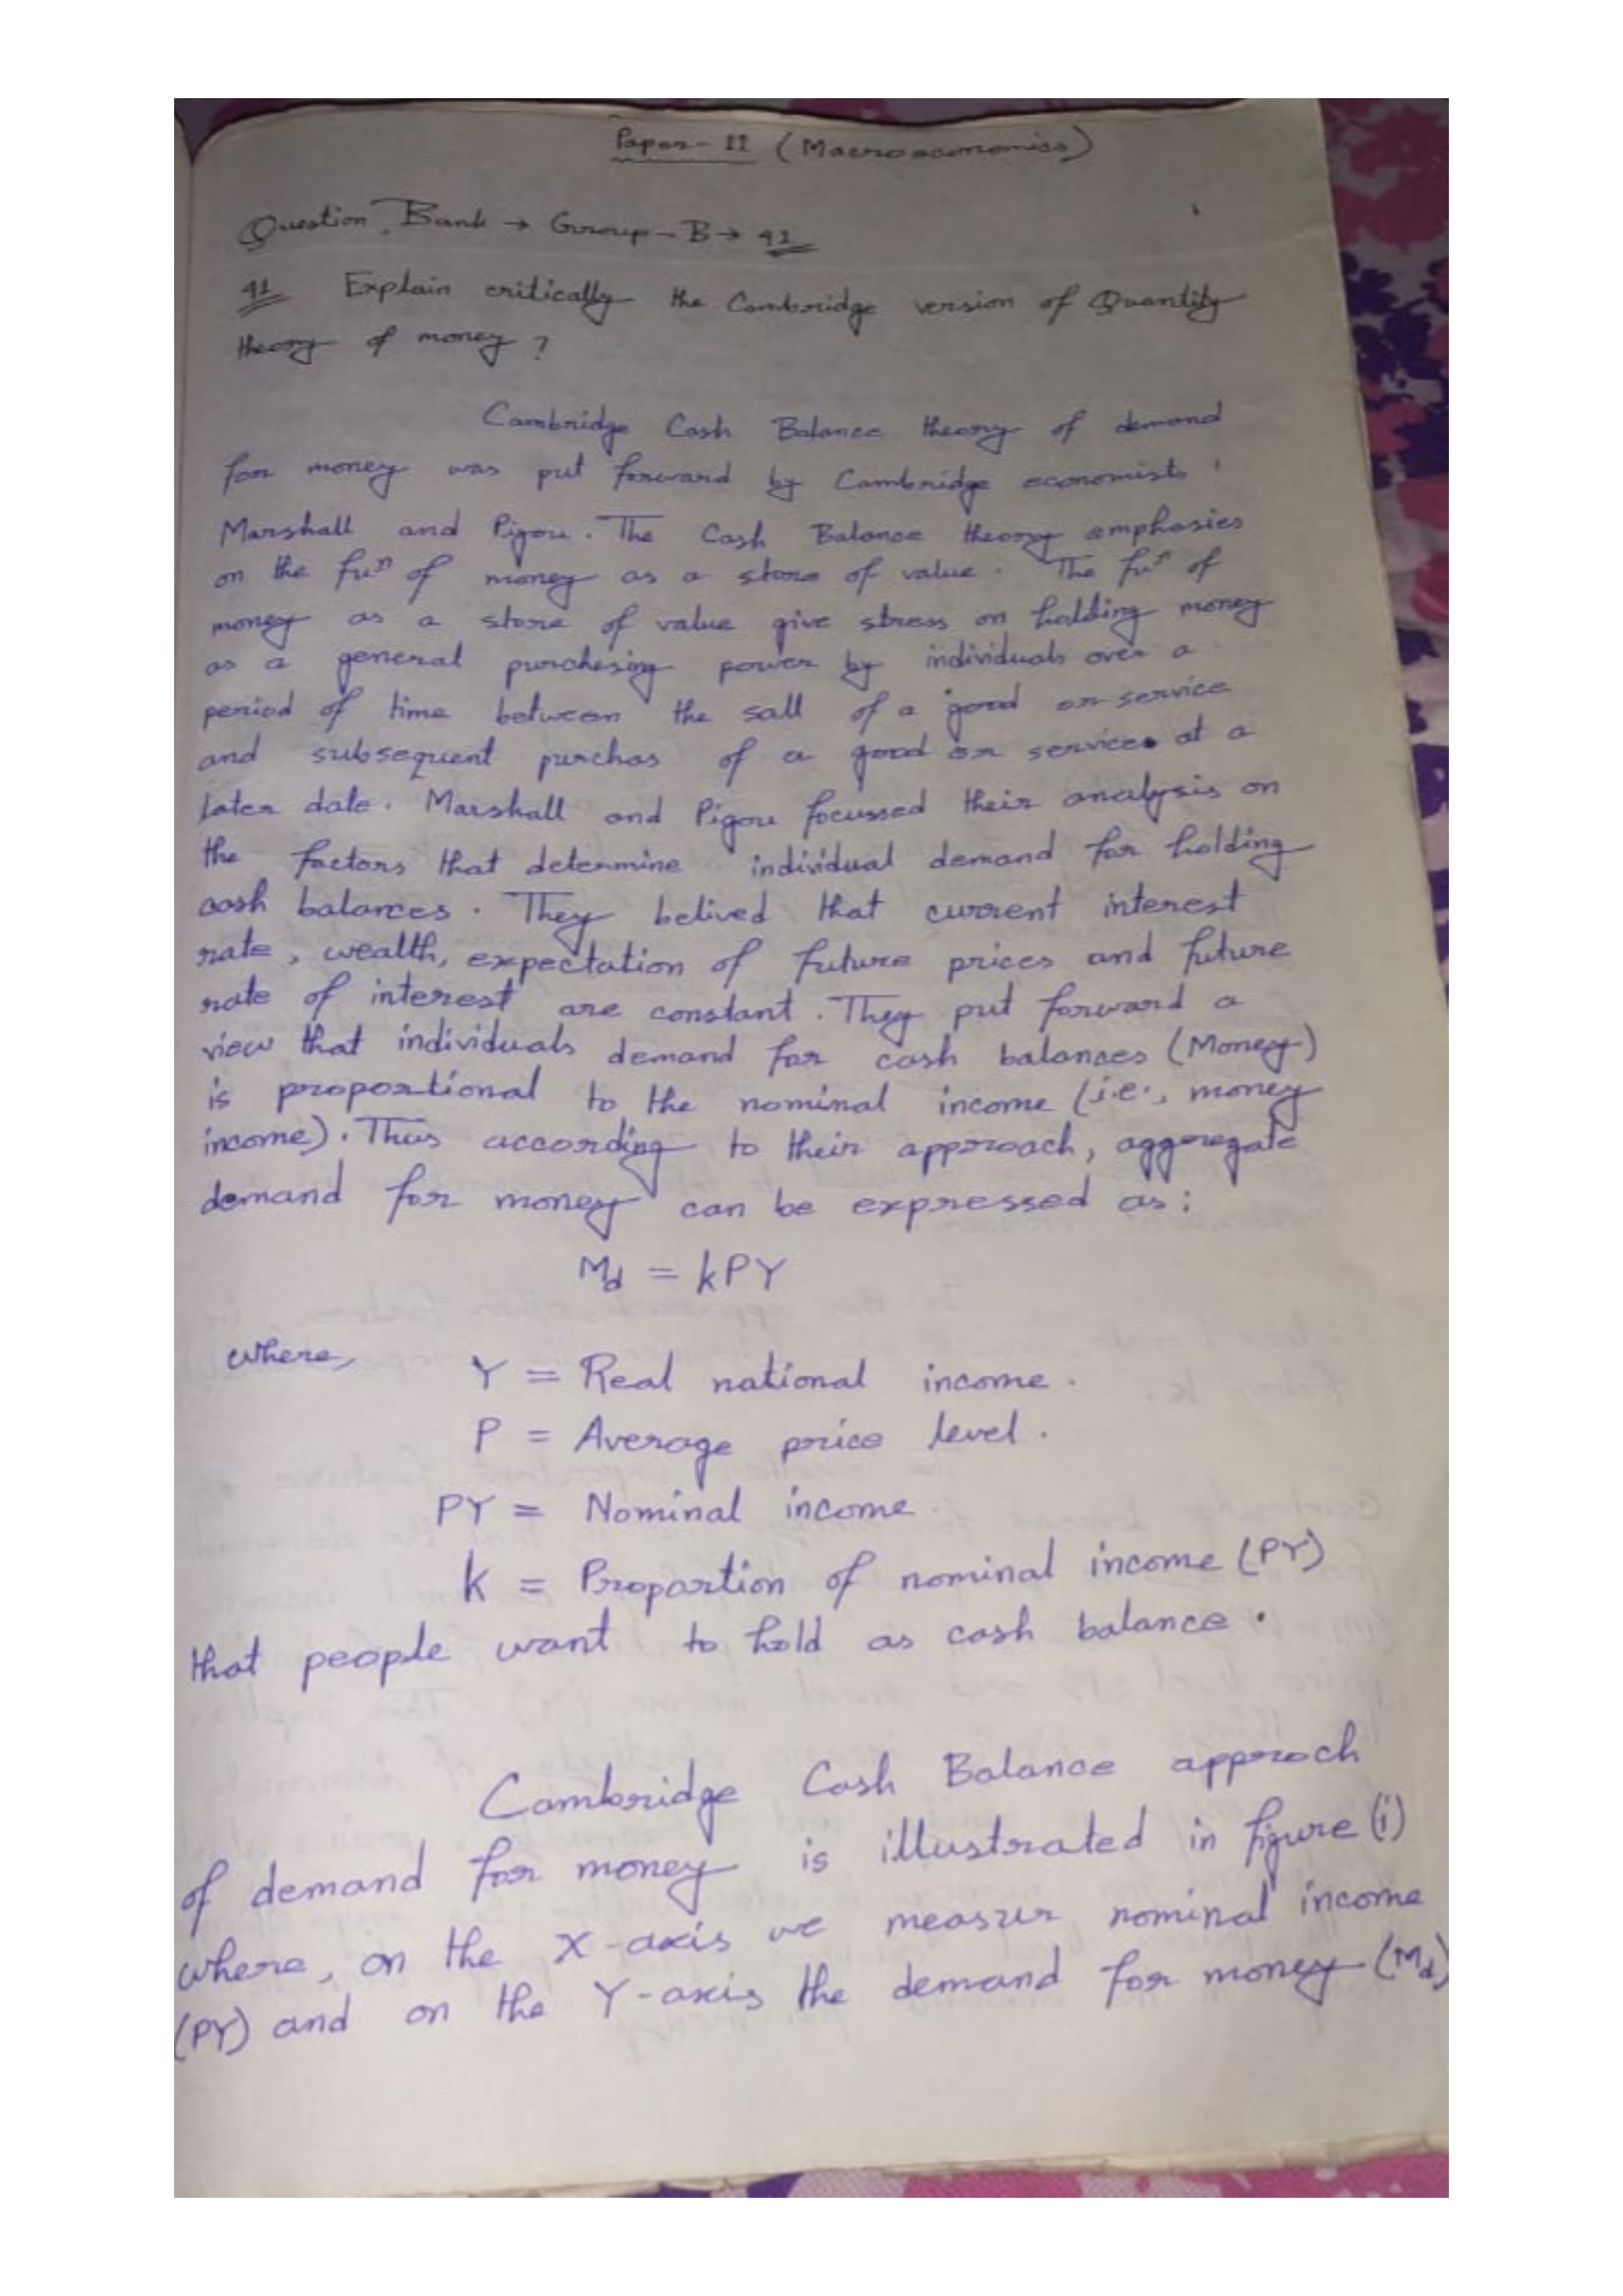 Paper - II (Macroeconomics)
Question Bank → Group - B → 41
41 Explain critically the Cambridge version of Quantity
theory of money ?
Cambridge Cash Balance theory of demand
for money was put forward by Cambridge economists
Marshall and Pigou. The Cash Balance theory emphasies
on the fuⁿ of money as a store of value. The fuⁿ of
money as a store of value give stress on holding money
as a general purchesing power by individuals over a
period of time between the sall of a good or service
and subsequent purchas of a good or services at a
later date. Marshall and Pigou focussed their analysis on
the factors that determine individual demand for holding
cash balances. They belived that current interest
rate, wealth, expectation of future prices and future
rate of interest are constant. They put forward a
view that individuals demand for cash balances (Money)
is proportional to the nominal income (i.e., money
income). Thus according to their approach, aggregate
demand for money can be expressed as:
Md = kPY
where,
Y = Real national income.
P = Average price level.
PY = Nominal income.
k = Proportion of nominal income (PY)
that people want to hold as cash balance.
Cambridge Cash Balance approch
of demand for money is illustrated in figure (i)
where, on the X-axis we measur nominal income
(PY) and on the Y-axis the demand for money (Md)